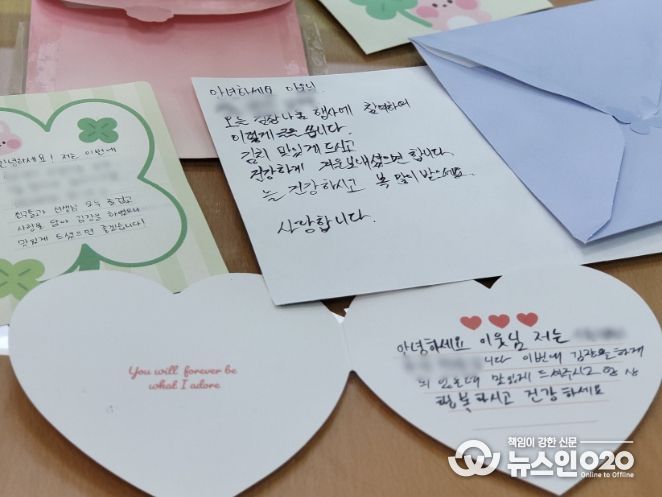 안녕하세요! 저는 이번에
친구들과 선생님 모두 즐겁고
사랑을 담아 김장을 하였으니
맛있게 드셨으면 좋겠습니다!
안녕하세요
오늘 김장 나눔 행사에 참여하여
이렇게 글을 씁니다.
김치 맛있게 드시고
건강하게 겨울 보내셨으면 합니다.
늘 건강하시고 복 많이 받으세요.
사랑합니다.
You will forever be
what I adore
안녕하세요 이웃님 저는
니다 이번에 김장을 하게
되었는데 맛있게 드셔주시고 항상
행복하시고 건강하세요
책임이 강한 신문
뉴스인O2O
Online to Offline